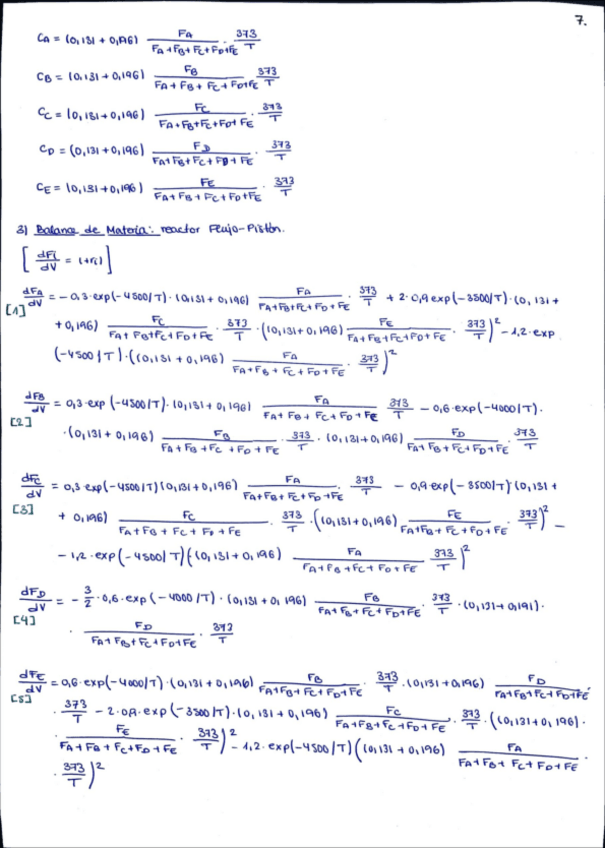 7.
CA = (0,131 + 0,196) FA / (FA+FB+FC+FD+FE) · 373/T
CB = (0,131 + 0,196) FB / (FA+FB+FC+FD+FE) · 373/T
CC = (0,131 + 0,196) FC / (FA+FB+FC+FD+FE) · 373/T
CD = (0,131 + 0,196) FD / (FA+FB+FC+FD+FE) · 373/T
CE = (0,131 + 0,196) FE / (FA+FB+FC+FD+FE) · 373/T
3) Balance de Materia: reactor Flujo-Pistón.
[ dFi/dV = (+ri) ]
[1] dFA/dV = -0,3·exp(-4500/T)·(0,131+0,196) FA / (FA+FB+FC+FD+FE) · 373/T + 2·0,9exp(-3500/T)·(0,131+
+0,196) FC / (FA+FB+FC+FD+FE) · 373/T · ((0,131+0,196) FE / (FA+FB+FC+FD+FE) · 373/T)² - 1,2·exp
(-4500/T)·((0,131+0,196) FA / (FA+FB+FC+FD+FE) · 373/T)²
[2] dFB/dV = 0,3·exp(-4500/T)·(0,131+0,196) FA / (FA+FB+FC+FD+FE) 373/T - 0,6·exp(-4000/T)·
·(0,131+0,196) FB / (FA+FB+FC+FD+FE) · 373/T · (0,131+0,196) FD / (FA+FB+FC+FD+FE) · 373/T
[3] dFC/dV = 0,3·exp(-4500/T)(0,131+0,196) FA / (FA+FB+FC+FD+FE) · 373/T - 0,9exp(-3500/T)·(0,131+
+ 0,196) FC / (FA+FB+FC+FD+FE) · 373/T · ((0,131+0,196) FE / (FA+FB+FC+FD+FE) · 373/T)² -
- 1,2·exp(-4500/T)((0,131+0,196) FA / (FA+FB+FC+FD+FE) 373/T)²
[4] dFD/dV = - 3/2 ·0,6·exp(-4000/T)·(0,131+0,196) FB / (FA+FB+FC+FD+FE) · 373/T ·(0,131+0,191)·
· FD / (FA+FB+FC+FD+FE) · 373/T
[5] dFE/dV = 0,6·exp(-4000/T)·(0,131+0,196) FB / (FA+FB+FC+FD+FE) · 373/T ·(0,131+0,196) FD / (FA+FB+FC+FD+FE)
· 373/T - 2·0,9·exp(-3500/T)·(0,131+0,196) FC / (FA+FB+FC+FD+FE) · 373/T · ((0,131+0,196)·
· FE / (FA+FB+FC+FD+FE) · 373/T)² - 1,2·exp(-4500/T)((0,131+0,196) FA / (FA+FB+FC+FD+FE) ·
· 373/T)²